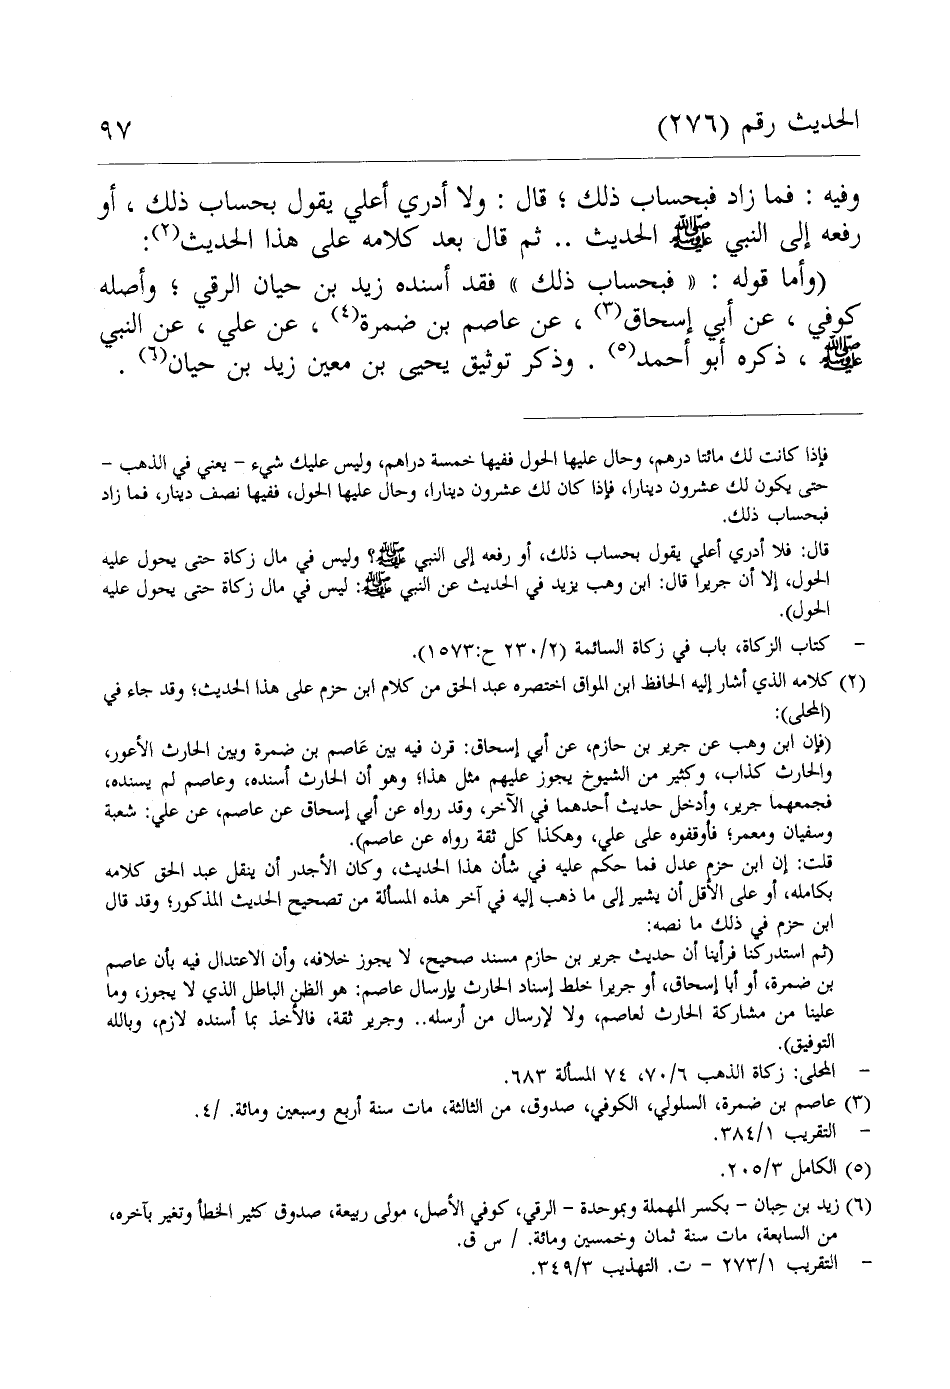 الحديث رقم (٢٧٦)
٩٧
وفيه : فما زاد فبحساب ذلك ؛ قال : ولا أدري أعلي يقول بحساب ذلك ، أو
رفعه إلى النبي ﷺ الحديث .. ثم قال بعد كلامه على هذا الحديث(٢):
(وأما قوله : « فبحساب ذلك » فقد أسنده زيد بن حيان الرقي ؛ وأصله
كوفي ، عن أبي إسحاق(٣) ، عن عاصم بن ضمرة(٤) ، عن علي ، عن النبي
ﷺ ، ذكره أبو أحمد(٥) . وذكر توثيق يحيى بن معين زيد بن حيان(٦) .
فإذا كانت لك مائتا درهم، وحال عليها الحول ففيها خمسة دراهم، وليس عليك شيء - يعني في الذهب -
حتى يكون لك عشرون دينارا، فإذا كان لك عشرون دينارا، وحال عليها الحول، ففيها نصف دينار، فما زاد
فبحساب ذلك.
قال: فلا أدري أعلي يقول بحساب ذلك، أو رفعه إلى النبي ﷺ؟ وليس في مال زكاة حتى يحول عليه
الحول، إلا أن جريرا قال: ابن وهب يزيد في الحديث عن النبي ﷺ: ليس في مال زكاة حتى يحول عليه
الحول).
- كتاب الزكاة، باب في زكاة السائمة (٢/ ٢٣٠ ح:١٥٧٣).
(٢) كلامه الذي أشار إليه الحافظ ابن المواق اختصره عبد الحق من كلام ابن حزم على هذا الحديث؛ وقد جاء في
(المحلى):
(فإن ابن وهب عن جرير بن حازم، عن أبي إسحاق: قرن فيه بين عاصم بن ضمرة وبين الحارث الأعور،
والحارث كذاب، وكثير من الشيوخ يجوز عليهم مثل هذا؛ وهو أن الحارث أسنده، وعاصم لم يسنده،
فجمعهما جرير، وأدخل حديث أحدهما في الآخر، وقد رواه عن أبي إسحاق عن عاصم، عن علي: شعبة
وسفيان ومعمر؛ فأوقفوه على علي، وهكذا كل ثقة رواه عن عاصم).
قلت: إن ابن حزم عدل فما حكم عليه في شأن هذا الحديث، وكان الأجدر أن ينقل عبد الحق كلامه
بكامله، أو على الأقل أن يشير إلى ما ذهب إليه في آخر هذه المسألة من تصحيح الحديث المذكور؛ وقد قال
ابن حزم في ذلك ما نصه:
(ثم استدركنا فرأينا أن حديث جرير بن حازم مسند صحيح، لا يجوز خلافه، وأن الاعتدال فيه بأن عاصم
بن ضمرة، أو أبا إسحاق، أو جريرا خلط إسناد الحارث بإرسال عاصم: هو الظن الباطل الذي لا يجوز، وما
علينا من مشاركة الحارث لعاصم، ولا لإرسال من أرسله.. وجرير ثقة، فالأخذ بما أسنده لازم، وبالله
التوفيق).
- المحلى: زكاة الذهب ٦/ ٧٠، ٧٤ المسألة ٦٨٣.
(٣) عاصم بن ضمرة، السلولي، الكوفي، صدوق، من الثالثة، مات سنة أربع وسبعين ومائة. /٤.
- التقريب ١/ ٣٨٤.
(٥) الكامل ٣/ ٢٠٥.
(٦) زيد بن حِبان - بكسر المهملة وبموحدة - الرقي، كوفي الأصل، مولى ربيعة، صدوق كثير الخطأ وتغير بآخره،
من السابعة، مات سنة ثمان وخمسين ومائة. / س ق.
- التقريب ١/ ٢٧٣ - ت. التهذيب ٣/ ٣٤٩.